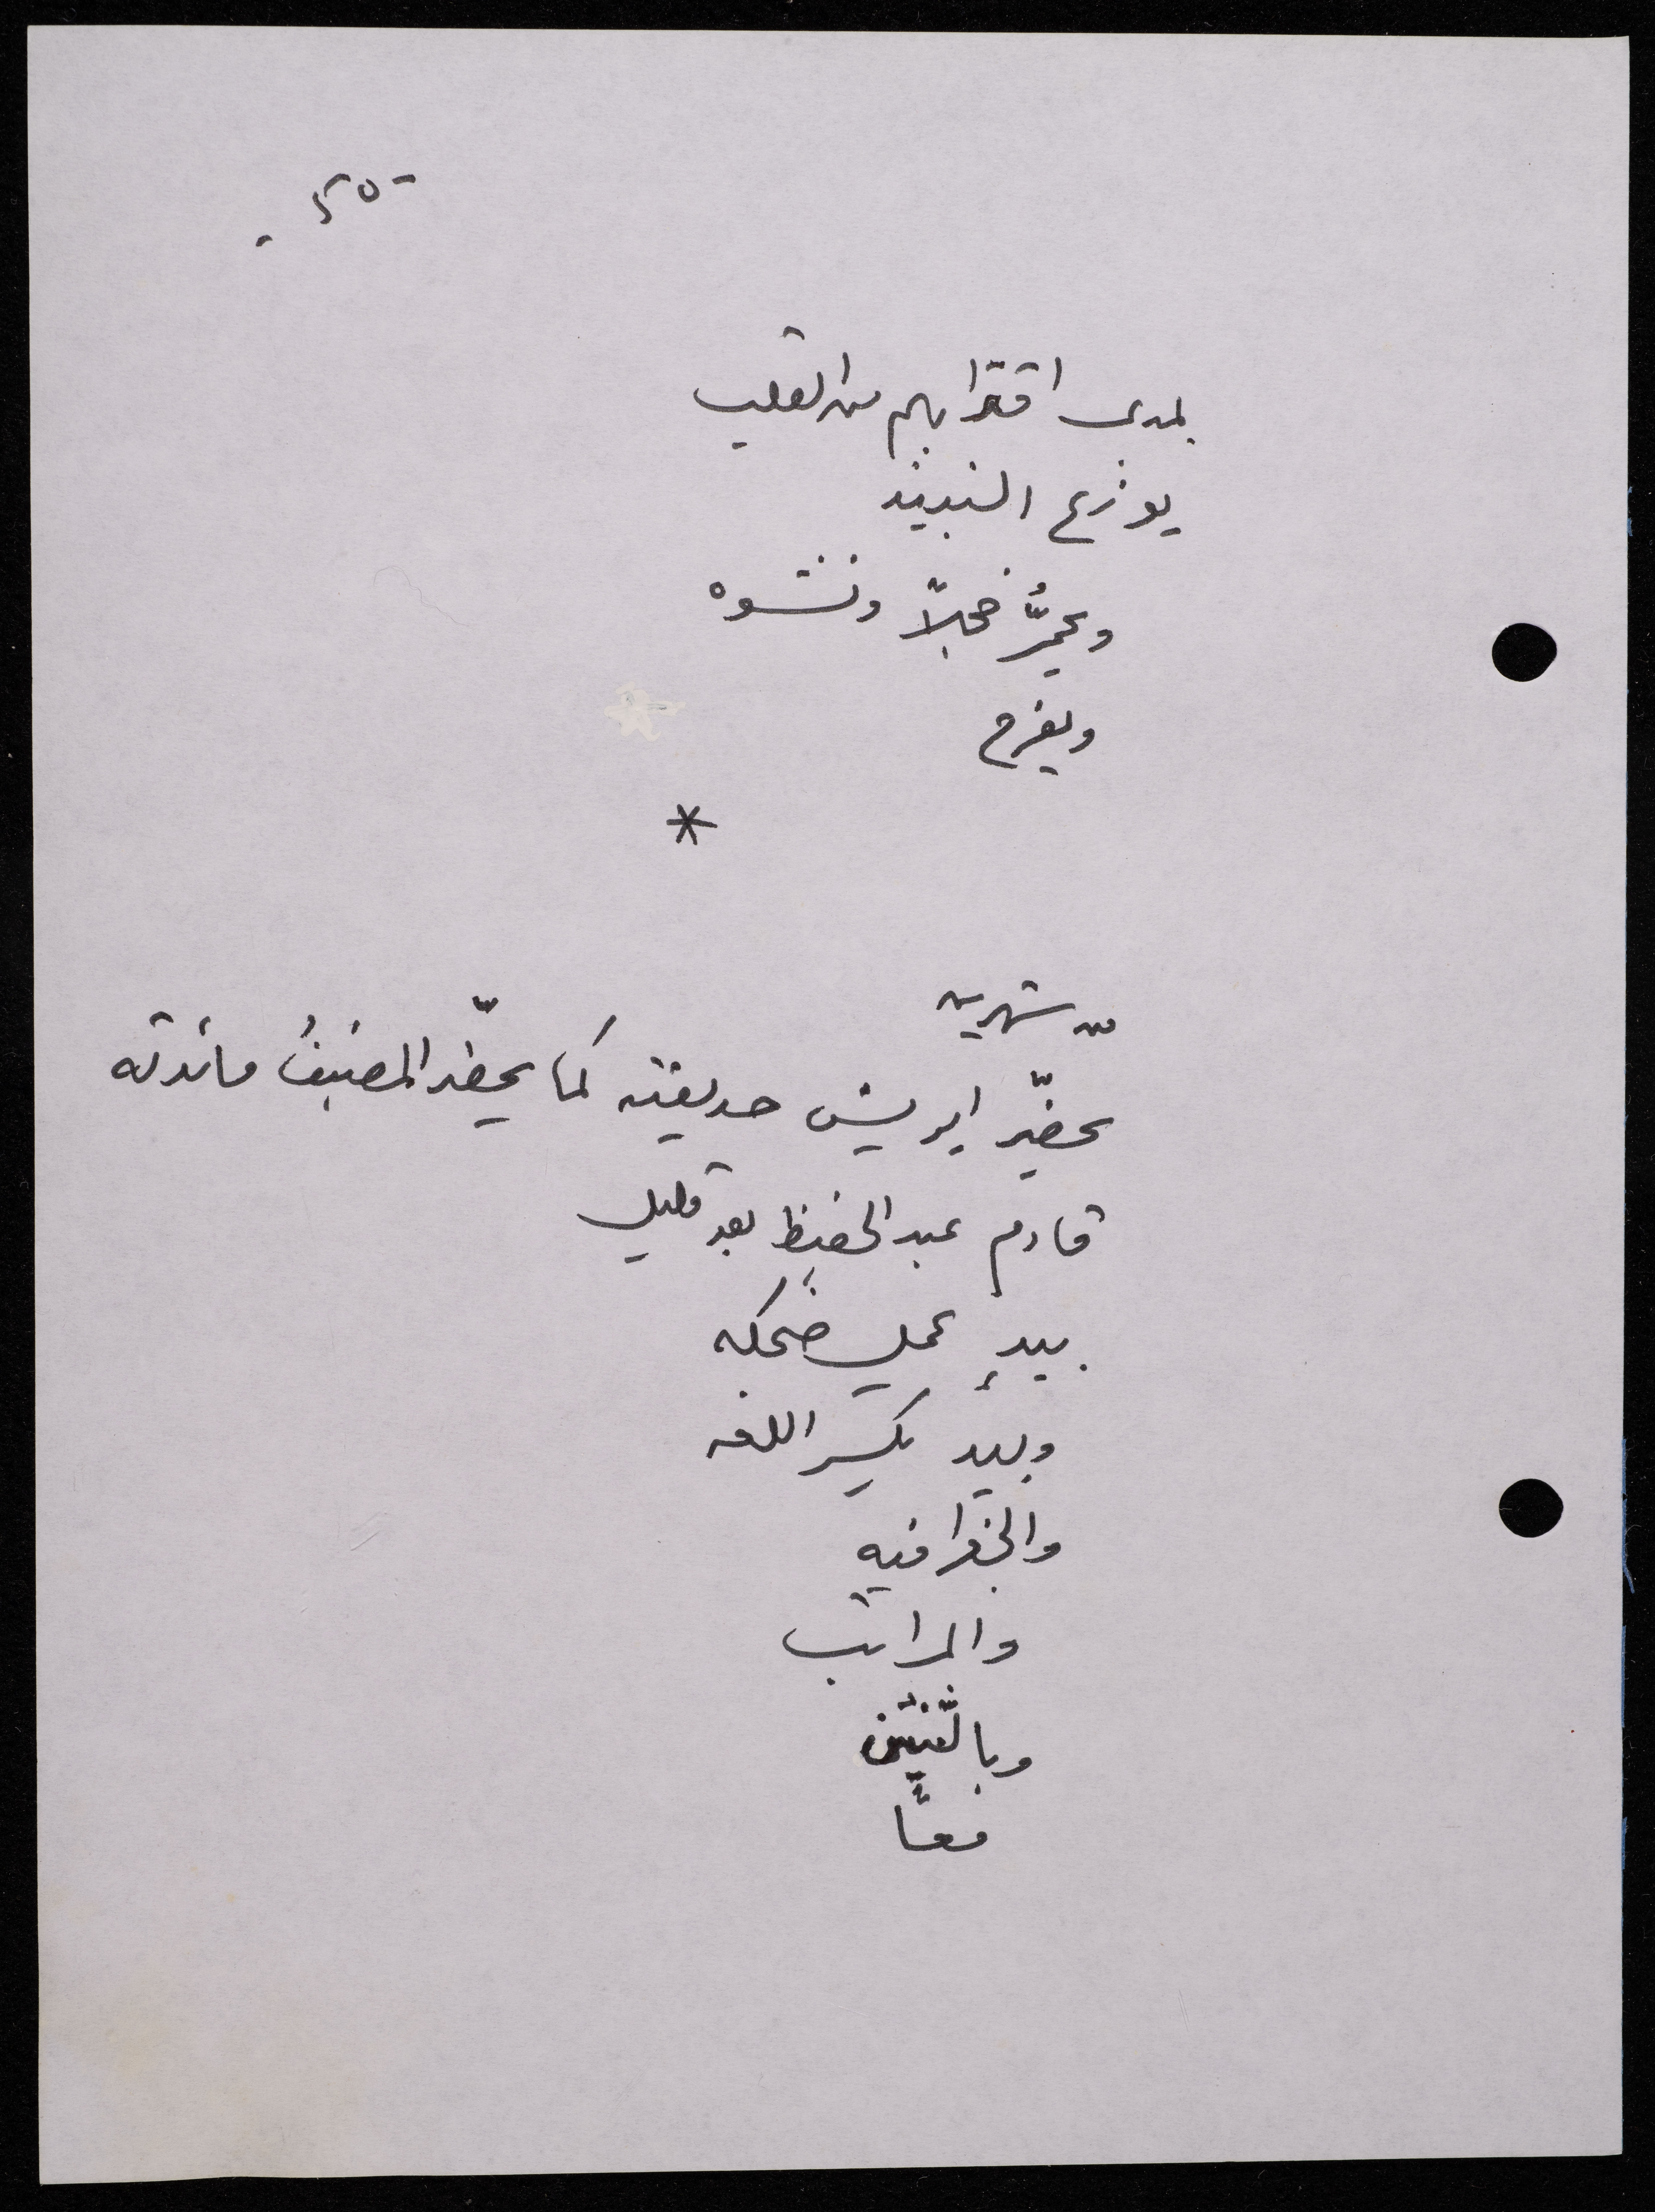 - ٥٢ -
بمدى اقترابهم من القلب
يوزع النبيذ
ويحمرُّ خجلاً ونشوه
ويفرح
*
من شهرين
يحضّر ابريش حديقته كما يحضّر المضيفُ مائدته
قادم عبد الحفيظ بعد قليل
بيدٍ يحمل ضحكه
وبيد يكسر اللغه
والجغرافيه
والمراتب
وبالثنتين
معًا